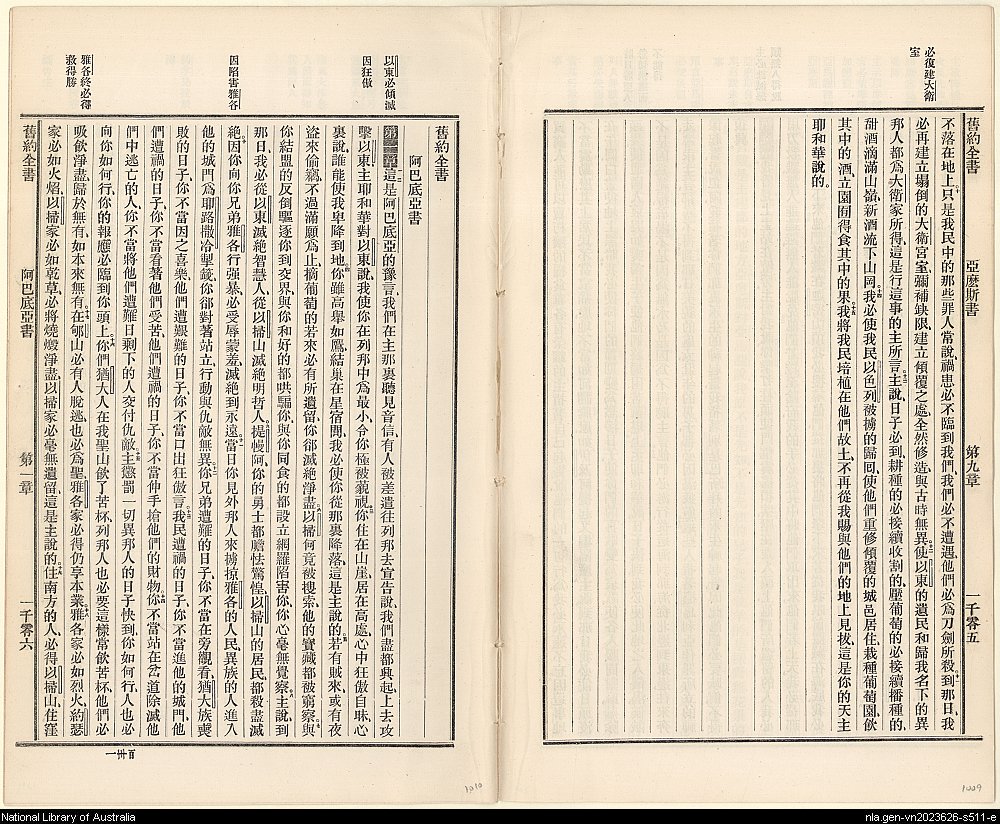 必復建大衛
室
舊約全書
亞麽斯書
第九章
一千零五
不落在地上、只是我民中的那些罪人常說、禍患必不臨到我們、我們必不遭遇、他們必爲刀劍所殺、到那日、我
必再建立塌倒的大衛宮室、彌補缺限、建立傾覆之處、全然修造、與古時無異、使以東的遺民和歸我名下的異
邦人都爲大衛家所得、這是行這事的主所言、主說、日子必到、耕種的必接續收割的、壓葡萄的必接續播種的、
甜酒滴滿山嶺、新酒流下山岡、我必使我民以色列被擄的歸回、使他們重修傾覆的城邑居住、栽種葡萄園飲
其中的酒、立園囿得食其中的果、我將我民培植在他們故土、不再從我賜與他們的地上見拔、這是你的天主
耶和華說的。
以東必傾滅
因狂傲
因陷害雅各
雅各終必得
救得勝
舊約全書
阿巴底亞書
第一章這是阿巴底亞的豫言、我們在主那裏聽見音信、有人被差遣往列邦去宣告說、我們盡都興起、上去攻
擊以東、主耶和華對以東說、我使你在列邦中爲最小、令你極被藐視、你住在山崖、居在高處、心中狂傲自昧、心
裏說、誰能使我卑降到地、你雖高舉如鷹、結巢在星宿間、我必使你從那裏降落、這是主說的、若有賊來、或有夜
盜來偷竊、不過滿願爲止、摘葡萄的若來、必有所遺留、你卻滅絕淨盡、以掃何竟被搜索、他的寶藏都被窮察、與
你結盟的反倒驅逐你到交界、與你和好的都哄騙你、與你同食的都設立網羅陷害你、你心毫無覺察、主說、到
那日我必從以東滅絕智慧人、從以掃山滅絕明哲人、提慢阿、你的勇士都膽怯驚惶、以掃山的居民都殺盡滅
絕、因你向你兄弟雅各行强暴、必受辱蒙羞、滅絕到永遠、當日你見外邦人來擄掠雅各的人民、異族的人進入
他的城門、爲耶路撒冷掣籤、你卻對著站立、行動與仇敵無異、你兄弟遭難的日子、你不當在旁觀看、猶大族喪
敗的日子、你不當因之喜樂、他們遭艱難的日子、你不當口出狂傲言、我民遭禍的日子、你不當進他的城門、他
們遭禍的日子、你不當看著他們受苦、他們遭禍的日子、你不當伸手搶他們的財物、你不當站在岔道除滅他
們中逃亡的人、你不當將他們遭難日剩下的人交付仇敵、主懲罰一切異邦人的日子快到、你如何行、人也必
向你如何行、你的報應必臨到你頭上、你們猶大人在我聖山飲了苦杯、列邦人也必要這樣常飲苦杯、他們必
吸飲淨盡、歸於無有、如本來無有、在郇山必有人脫逃、也必爲聖、雅各家必得仍享本業、雅各家必如烈火、約瑟
家必如火焰、以掃家必如乾草、必將燒燬淨盡、以掃家必毫無遺留、這是主說的、住南方的人、必得以掃山、住窪
舊約全書
阿巴底亞書
第一章
一千零六
百卅一
1010
1009
National Library of Australia
nla.gen-vn2023626-s511-e